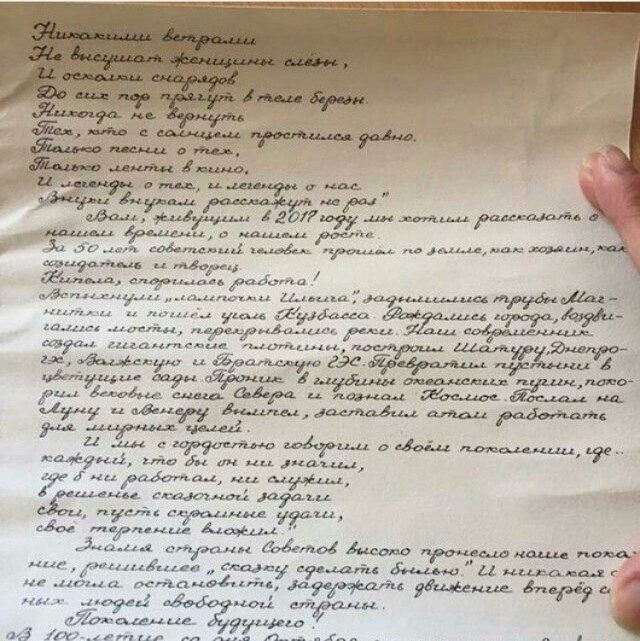 Никакими ветрами
Не высушат женщины слёзы,
И осколки снарядов
До сих пор прячут в теле березы.
Никогда не вернуть
Тех, кто с солнцем простился давно.
Только песни о тех,
Только ленты в кино,
И легенды о тех, и легенды о нас
Внуки внукам расскажут не раз"
Вам, живущим в 2017 году мы хотим рассказать о
нашем времени, о нашем росте.
За 50 лет советский человек прошёл по земле, как хозяин, как
созидатель и творец.
Кипела, спорилась работа!
Вспыхнули „лампочки Ильича", задымились трубы Маг-
нитки и пошёл уголь Кузбасса. Рождались города, воздви-
гались мосты, перекрывались реки. Наш современник
создал гигантские плотины, построил Шатуру, Днепро-
гэс, Волжскую и Братскую ГЭС. Превратил пустыни в
цветущие сады. Проник в глубины океанских пучин, поко-
рил вековые снега Севера и познал Космос. Послал на
Луну и Венеру вымпел, заставил атом работать
для мирных целей.
И мы с гордостью говорим о своём поколении, где..
каждый, что бы он ни значил,
где б ни работал, ни служил,
в решенье сказочной задачи
свои, пусть скромные удачи,
своё терпение вложил."
Знамя страны Советов высоко пронесло наше поко
ние, решившее „сказку сделать былью." И никакая с
не могла остановить, задержать движение вперёд с
ных людей свободной страны.
Поколение будущего!
В 100-летие со дня Октябр